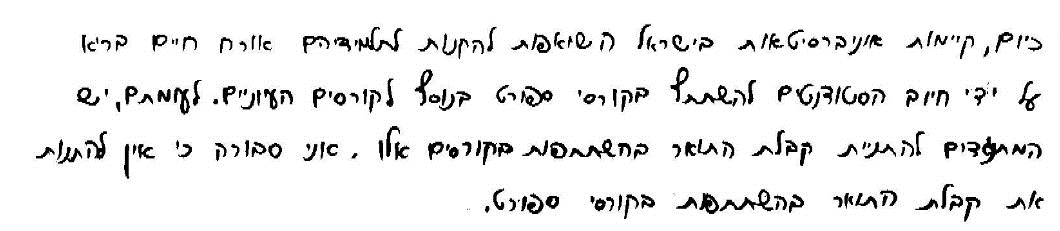 כיום, קיימות אוניברסיטאות בישראל השואפות להקנות לתלמידיהם אורח חיים בריא
על ידי חיוב הסטודנטים להשתתף בקורסי ספורט בנוסף לקורסים העיוניים. לעומתם, יש
המתנגדים להתניית קבלת התואר בהשתתפות בקורסים אלו. אני סבורה כי אין להתנות
את קבלת התואר בהשתתפות בקורסי ספורט.